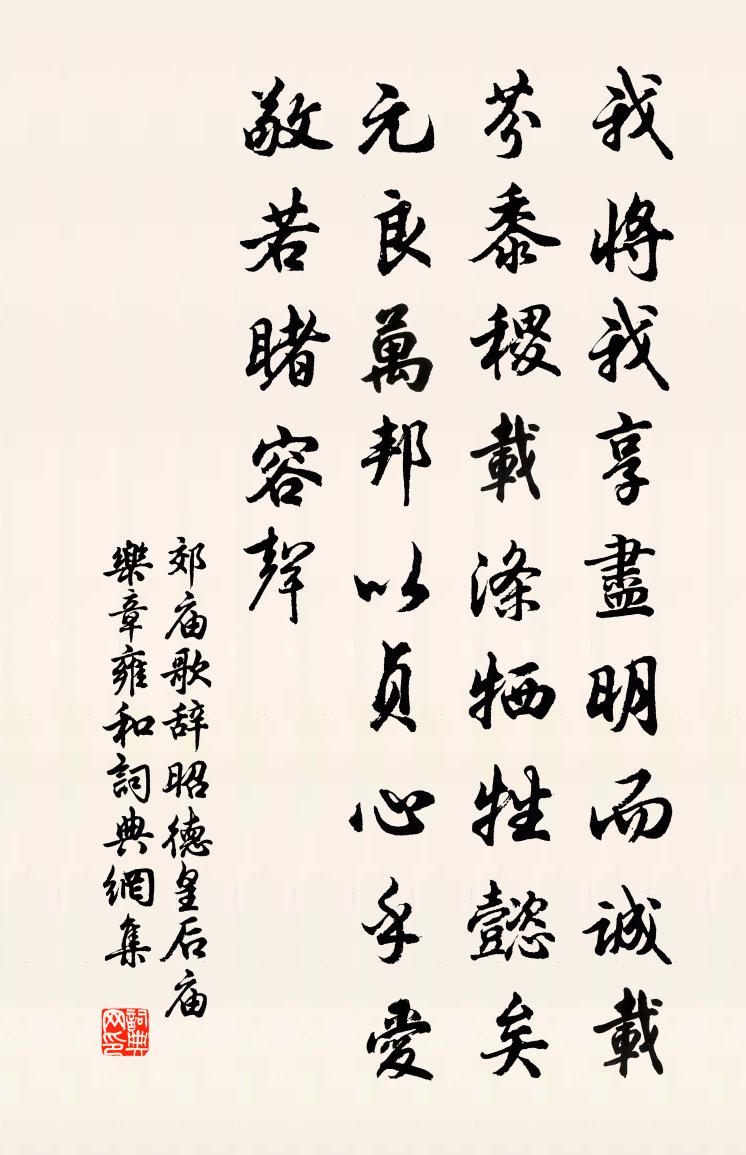 我將我享盡明而誠載
芬黍稷載滌牺牲懿矣
元良萬邦以貞心乎愛
敬若睹容聲
郊庙歌辞昭德皇后庙
樂章雍和詞典網集
詞典网印